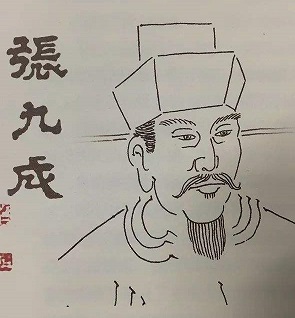 張九成